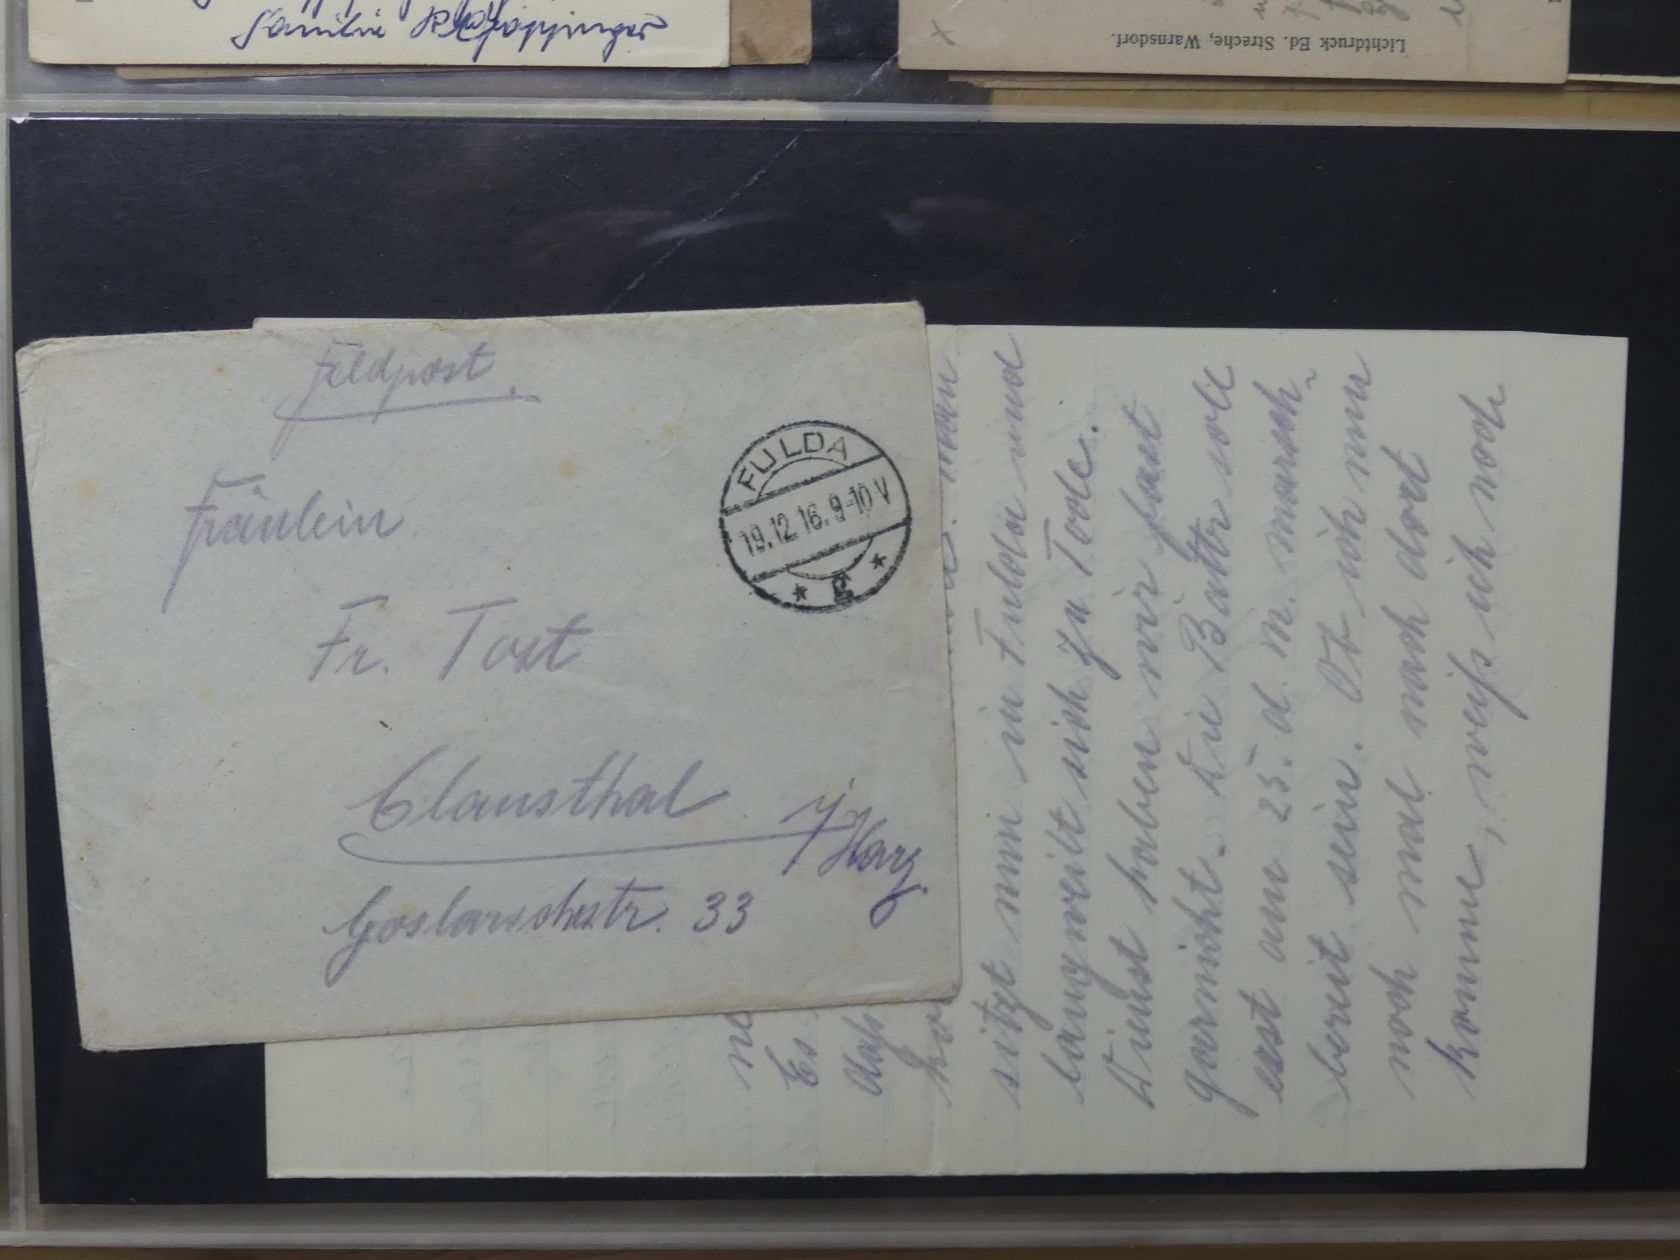 Familie
Lichtdruck Ed. Strache, Warnsdorf.
Feldpost.
Fräulein
Fr. Tost
Clausthal i/Harz
Goslarschestr. 33
FULDA
19.12.16. 9-10 V
* g *
Es
man
sitzt nun in Fulda und
langweilt sich zu Tode.
Dienst haben wir fast
garnicht. Die Battr soll
erst am 25. d. M. marsch-
bereit sein. Ob ich nun
noch mal nach dort
komme, weiß ich noch